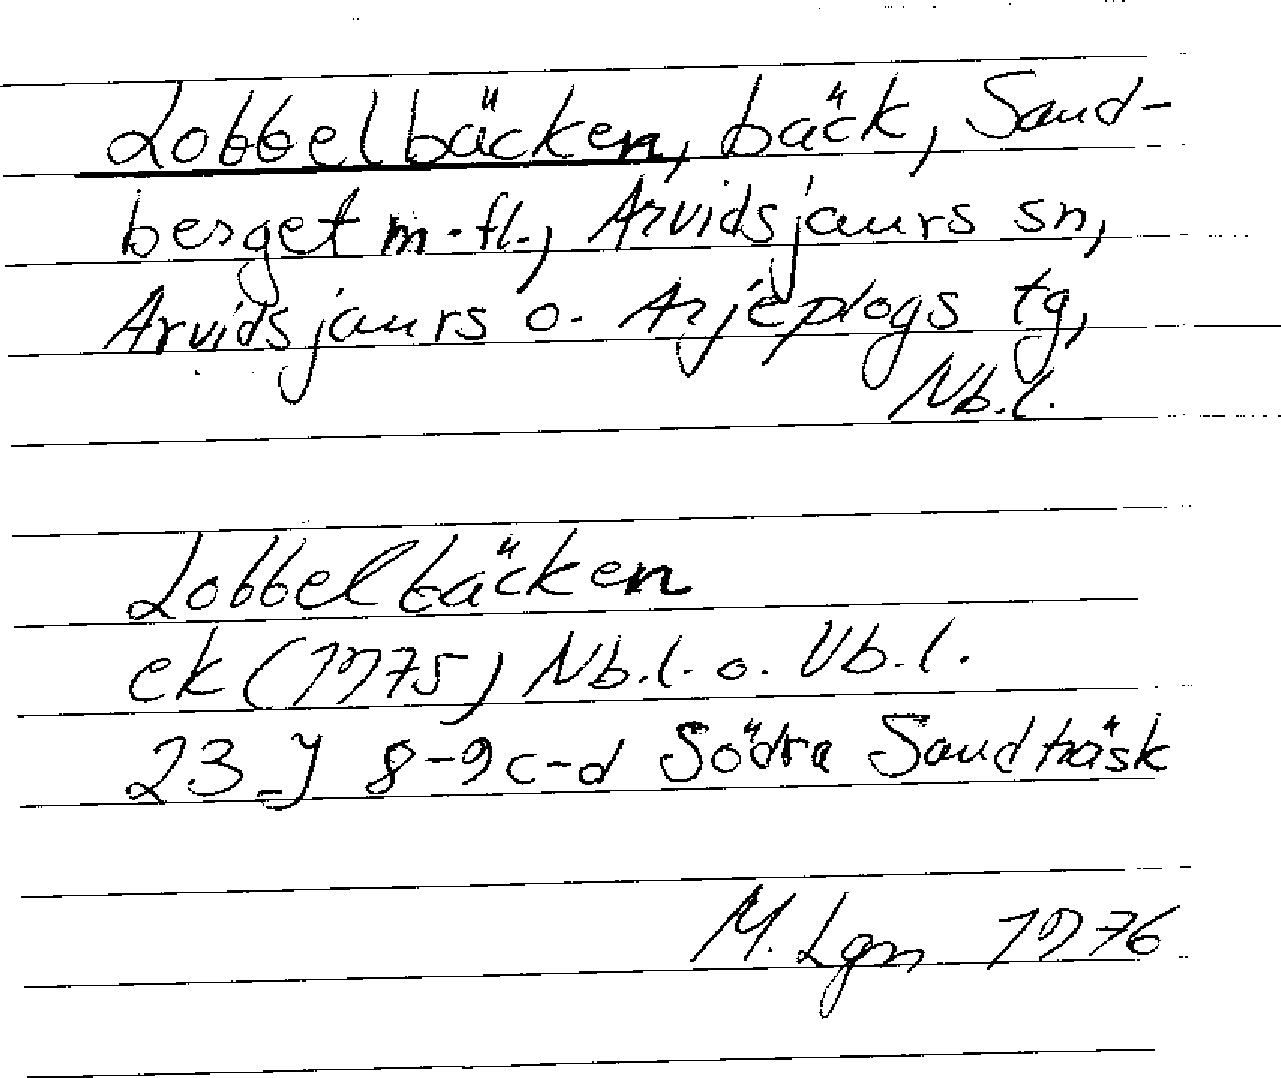 Lobbelbäcken, bäck, Sand-
berget m.fl., Arvidsjaurs sn,
Arvidsjaurs o. Arjeplogs tg,
Nb.l.
Lobbelbäcken
ek (1975) Nb.l. o. Vb.l.
23 J 8-9 c-d Södra Sandträsk
M. Lgn 1976